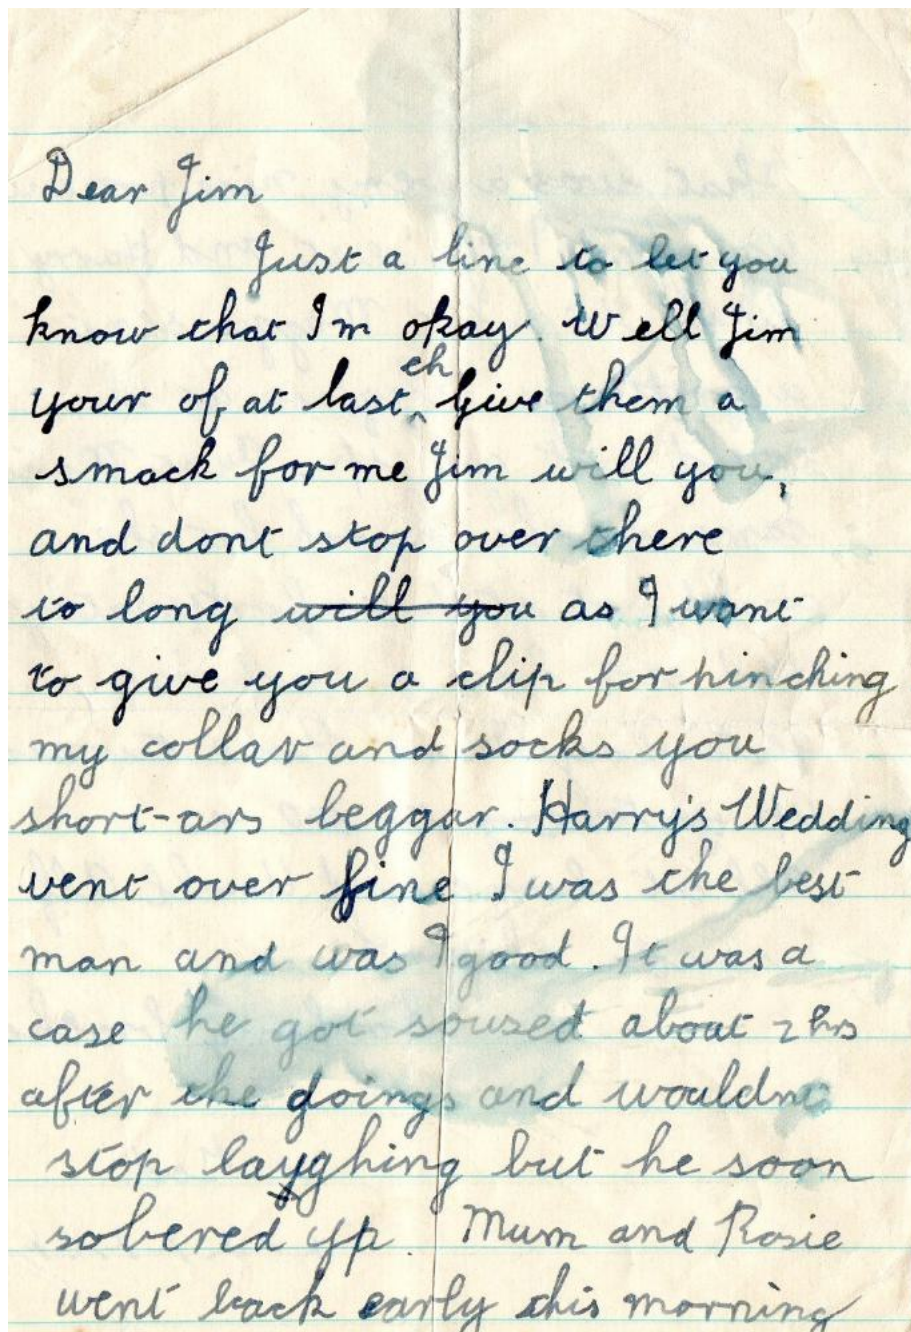 Dear Jim
Just a line to let you
know that I'm okay. Well Jim
your of at last eh Give them a
smack for me Jim will you,
and dont stop over there
to long will you as I want
to give you a clip for pinching
my collar and socks you
short-ars beggar. Harry's Wedding
went over fine I was the best
man and was I good. It was a
case he got soused about 2 hrs
after the doings and wouldnt
stop layghing but he soon
sobered yp. Mum and Rosie
went back early this morning